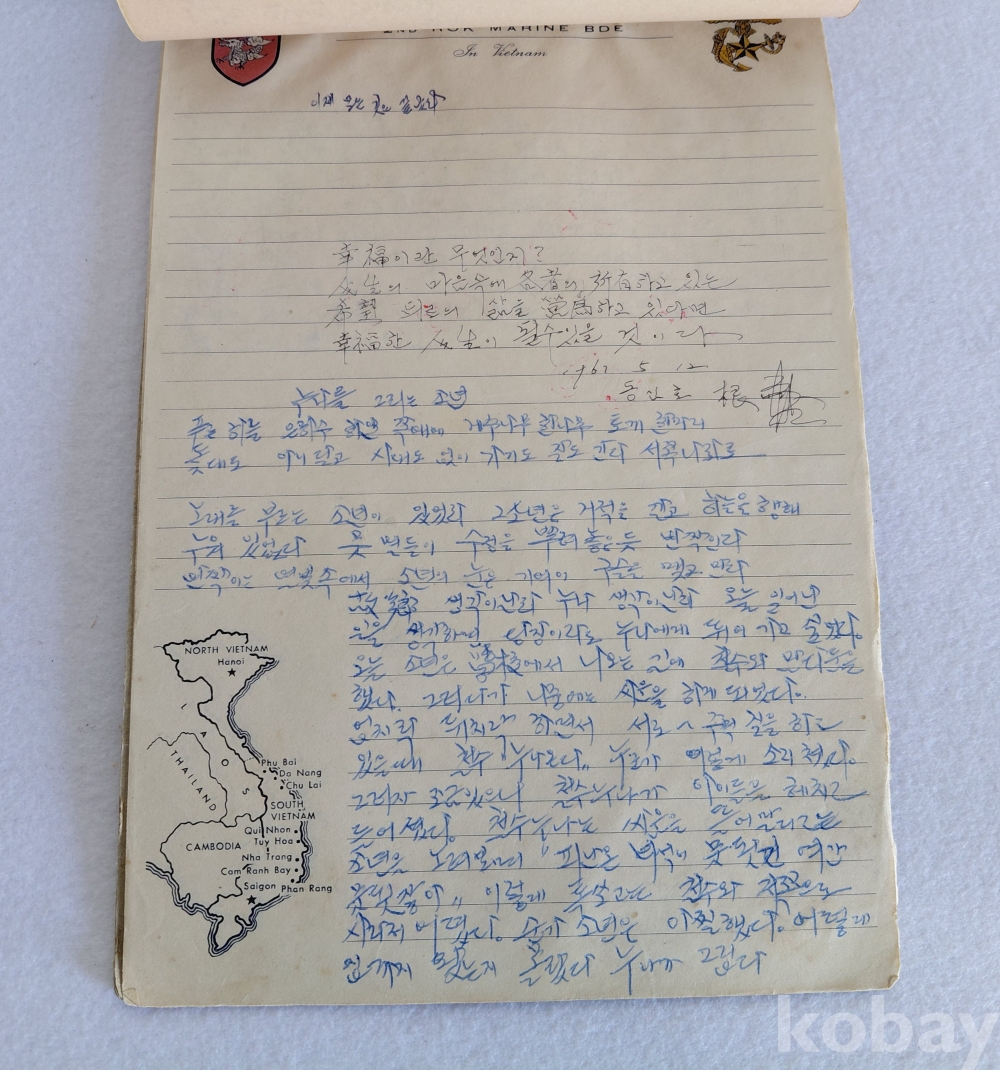 2ND ROK MARINE BDE
In Vietnam
이제 우는
幸福이란 무엇인지?
人生의 마음속에 各者의 所有하고 있는
希望 의 삶을 營爲하고 있다면
幸福한 人生이 될수있을 것이다
1967 5 12
根
누나를 그리는 소년
푸른 하늘 은하수 하얀 쪽배에 계수나무 한나무 토끼 한마리
돛대도 아니 달고 삿대도 없이 가기도 잘도 간다 서쪽나라로
노래를 부르는 소년이 있었다 그소년은 거적을 깔고 하늘을 향해
누워 있었다 뭇 별들이 수정을 뿌려 놓은듯 반짝인다
반짝이는 별빛속에서 소년의 눈은 기어이 구슬을 맺고 만다
故鄕 생각이난다 누나 생각이난다 오늘 일어난
일을 생각하면 당장이라도 누나에게 뛰어 가고 싶었다.
오늘 소년은 學校에서 나오는 길에 철수와 말다툼을
했다. 그러다가 나중에는 싸움을 하게 되었다.
엎치락 뒤치락 하면서 서로 주먹 질을 하고
있을때 철수 누나온다" 누군가 이렇게 소리 쳤다.
그러자 조금있으니 철수누나가 아이들을 헤치고
들어섰다. 철수누나는 싸움을 뜯어말리고는
소년을 노려보며 "피난온 녀석이 못된건 여간
못됐쟎아" 이렇게 톡 쏘고는 철수와 저쪽으로
사라져 버렸다. 순간 소년은 아찔했다. 어떻게
집까지 왔는지 몰랐다 누나가 그립다
NORTH VIETNAM
Hanoi
LAOS
THAILAND
Phu Bai
Da Nang
Chu Lai
SOUTH
VIETNAM
Qui Nhon
Tuy Hoa
CAMBODIA
Nha Trang
Cam Ranh Bay
Saigon
Phan Rang
kobay